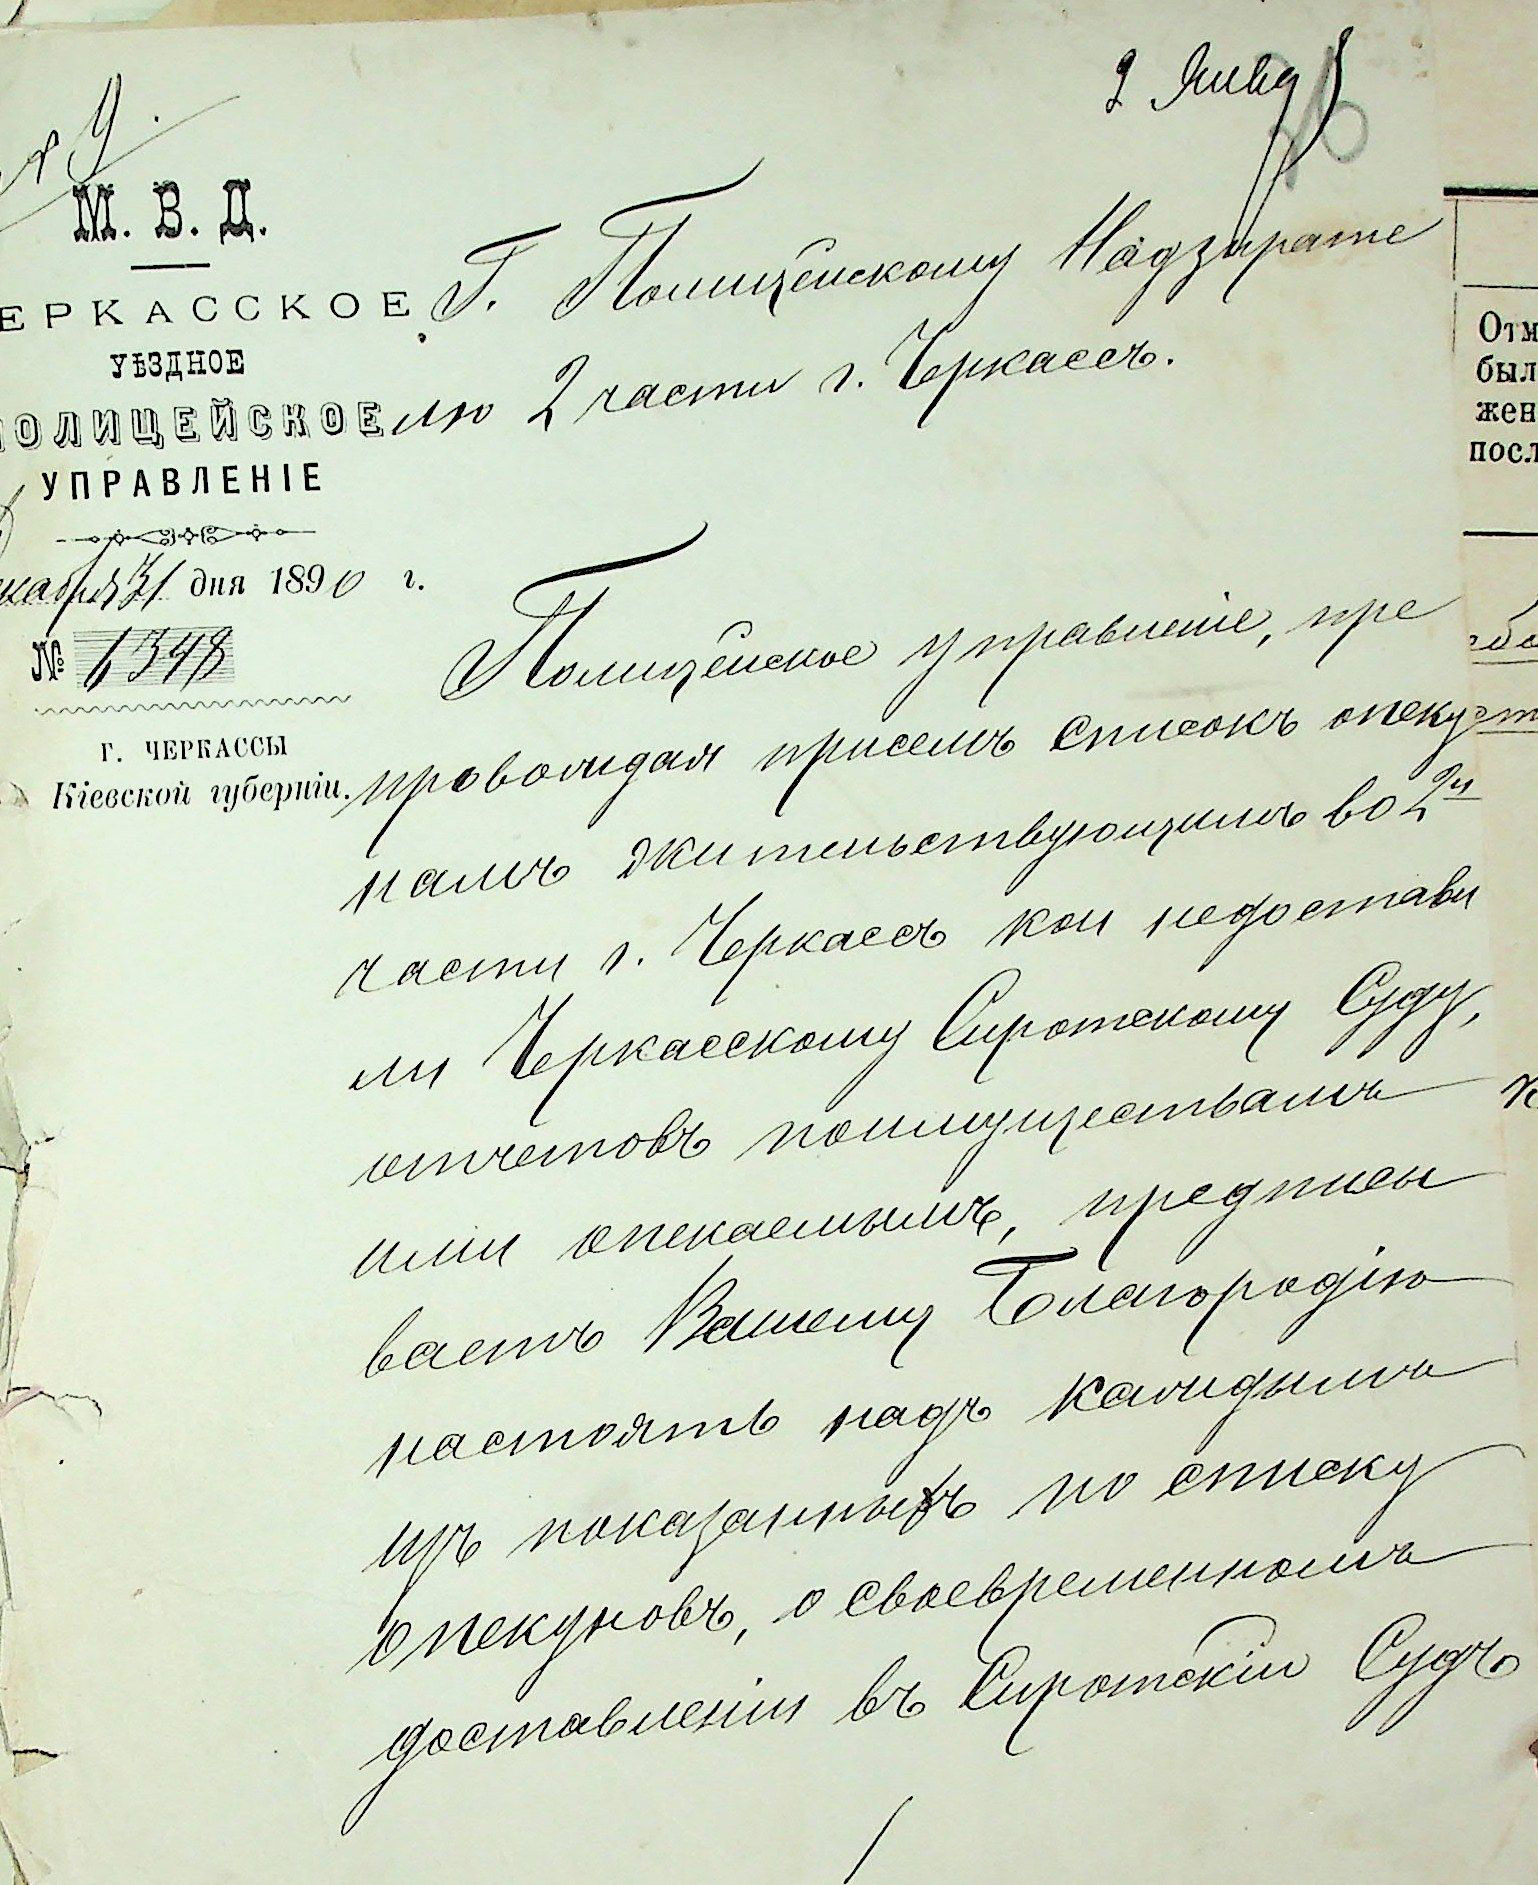 2 Янва
№ 9.
М. В. Д.
ЕРКАССКОЕ
УѢЗДНОЕ
ПОЛИЦЕЙСКОЕ
УПРАВЛЕНІЕ
екабря 31 дня 1890 г.
№ 1348
Г. ЧЕРКАССЫ
Кіевской губерніи.
Г. Полицейскому Надзирате
лю 2 части г. Черкассъ.
Полицейское управленіе, пре
провождая присемъ списокъ опеку
намъ жительствующимъ во 2й
части г. Черкассъ кои недостави
ли Черкасскому Сиротскому Суду,
отчетовъ поимуществамъ
ими опекаемымъ, предписы
ваетъ Вашему Благородію
настоять надъ каждымъ
изъ показанныхъ по списку
опекуновъ, о своевременномъ
доставленіи въ Сиротскій Судъ
Отм
был
жен
посл